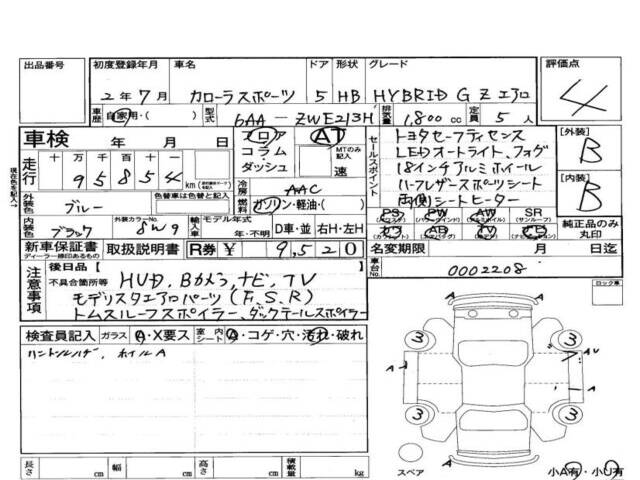 出品番号 初度登録年月 車名 ドア 形状 グレード 評価点
2年7月 カローラスポーツ 5 HB HYBRID G Z エアロ 4
車歴 自家用・( ) 型式 6AA-ZWE213H 排気量 1,800 cc 定員 5 人
車検 年 月 日 フロア AT セールスポイント トヨタセーフティセンス [外装] B
走行 十万千百十一 コラム MTのみ記入 LEDオートライト、フォグ
95854 km ダッシュ 速 18インチアルミホイール
現在色を記入 冷房 AAC ハーフレザースポーツシート [内装] B
外装色 ブルー 色替車は色替と記入 燃料 ガソリン・軽油・( ) 両側シートヒーター
内装色 ブラック 外装カラーNo. 8W9 輸入車 モデル年式 年・不明 D車・並 右H・左H PS PW AW SR 純正品のみ丸印
新車保証書 取扱説明書 R券 ¥ 9,520 名変期限 月 日迄
ディーラー印のあるもの
注意事項 後日品【 】 車台No. 0002208 ロック車
不具合箇所等 HUD、Bカメラ、ナビ、TV
モデリスタエアロパーツ(F.S.R)
トムスルーフスポイラー、ダックテールスポイラー
検査員記入 ガラス A・X要ス 室内シート A・コゲ・穴・汚れ・破れ
ホイルA
A
3 3
A AU
A
3 3
A
長さ cm 幅 cm 高さ cm 積載量 kg
スペア 小A有・小U有